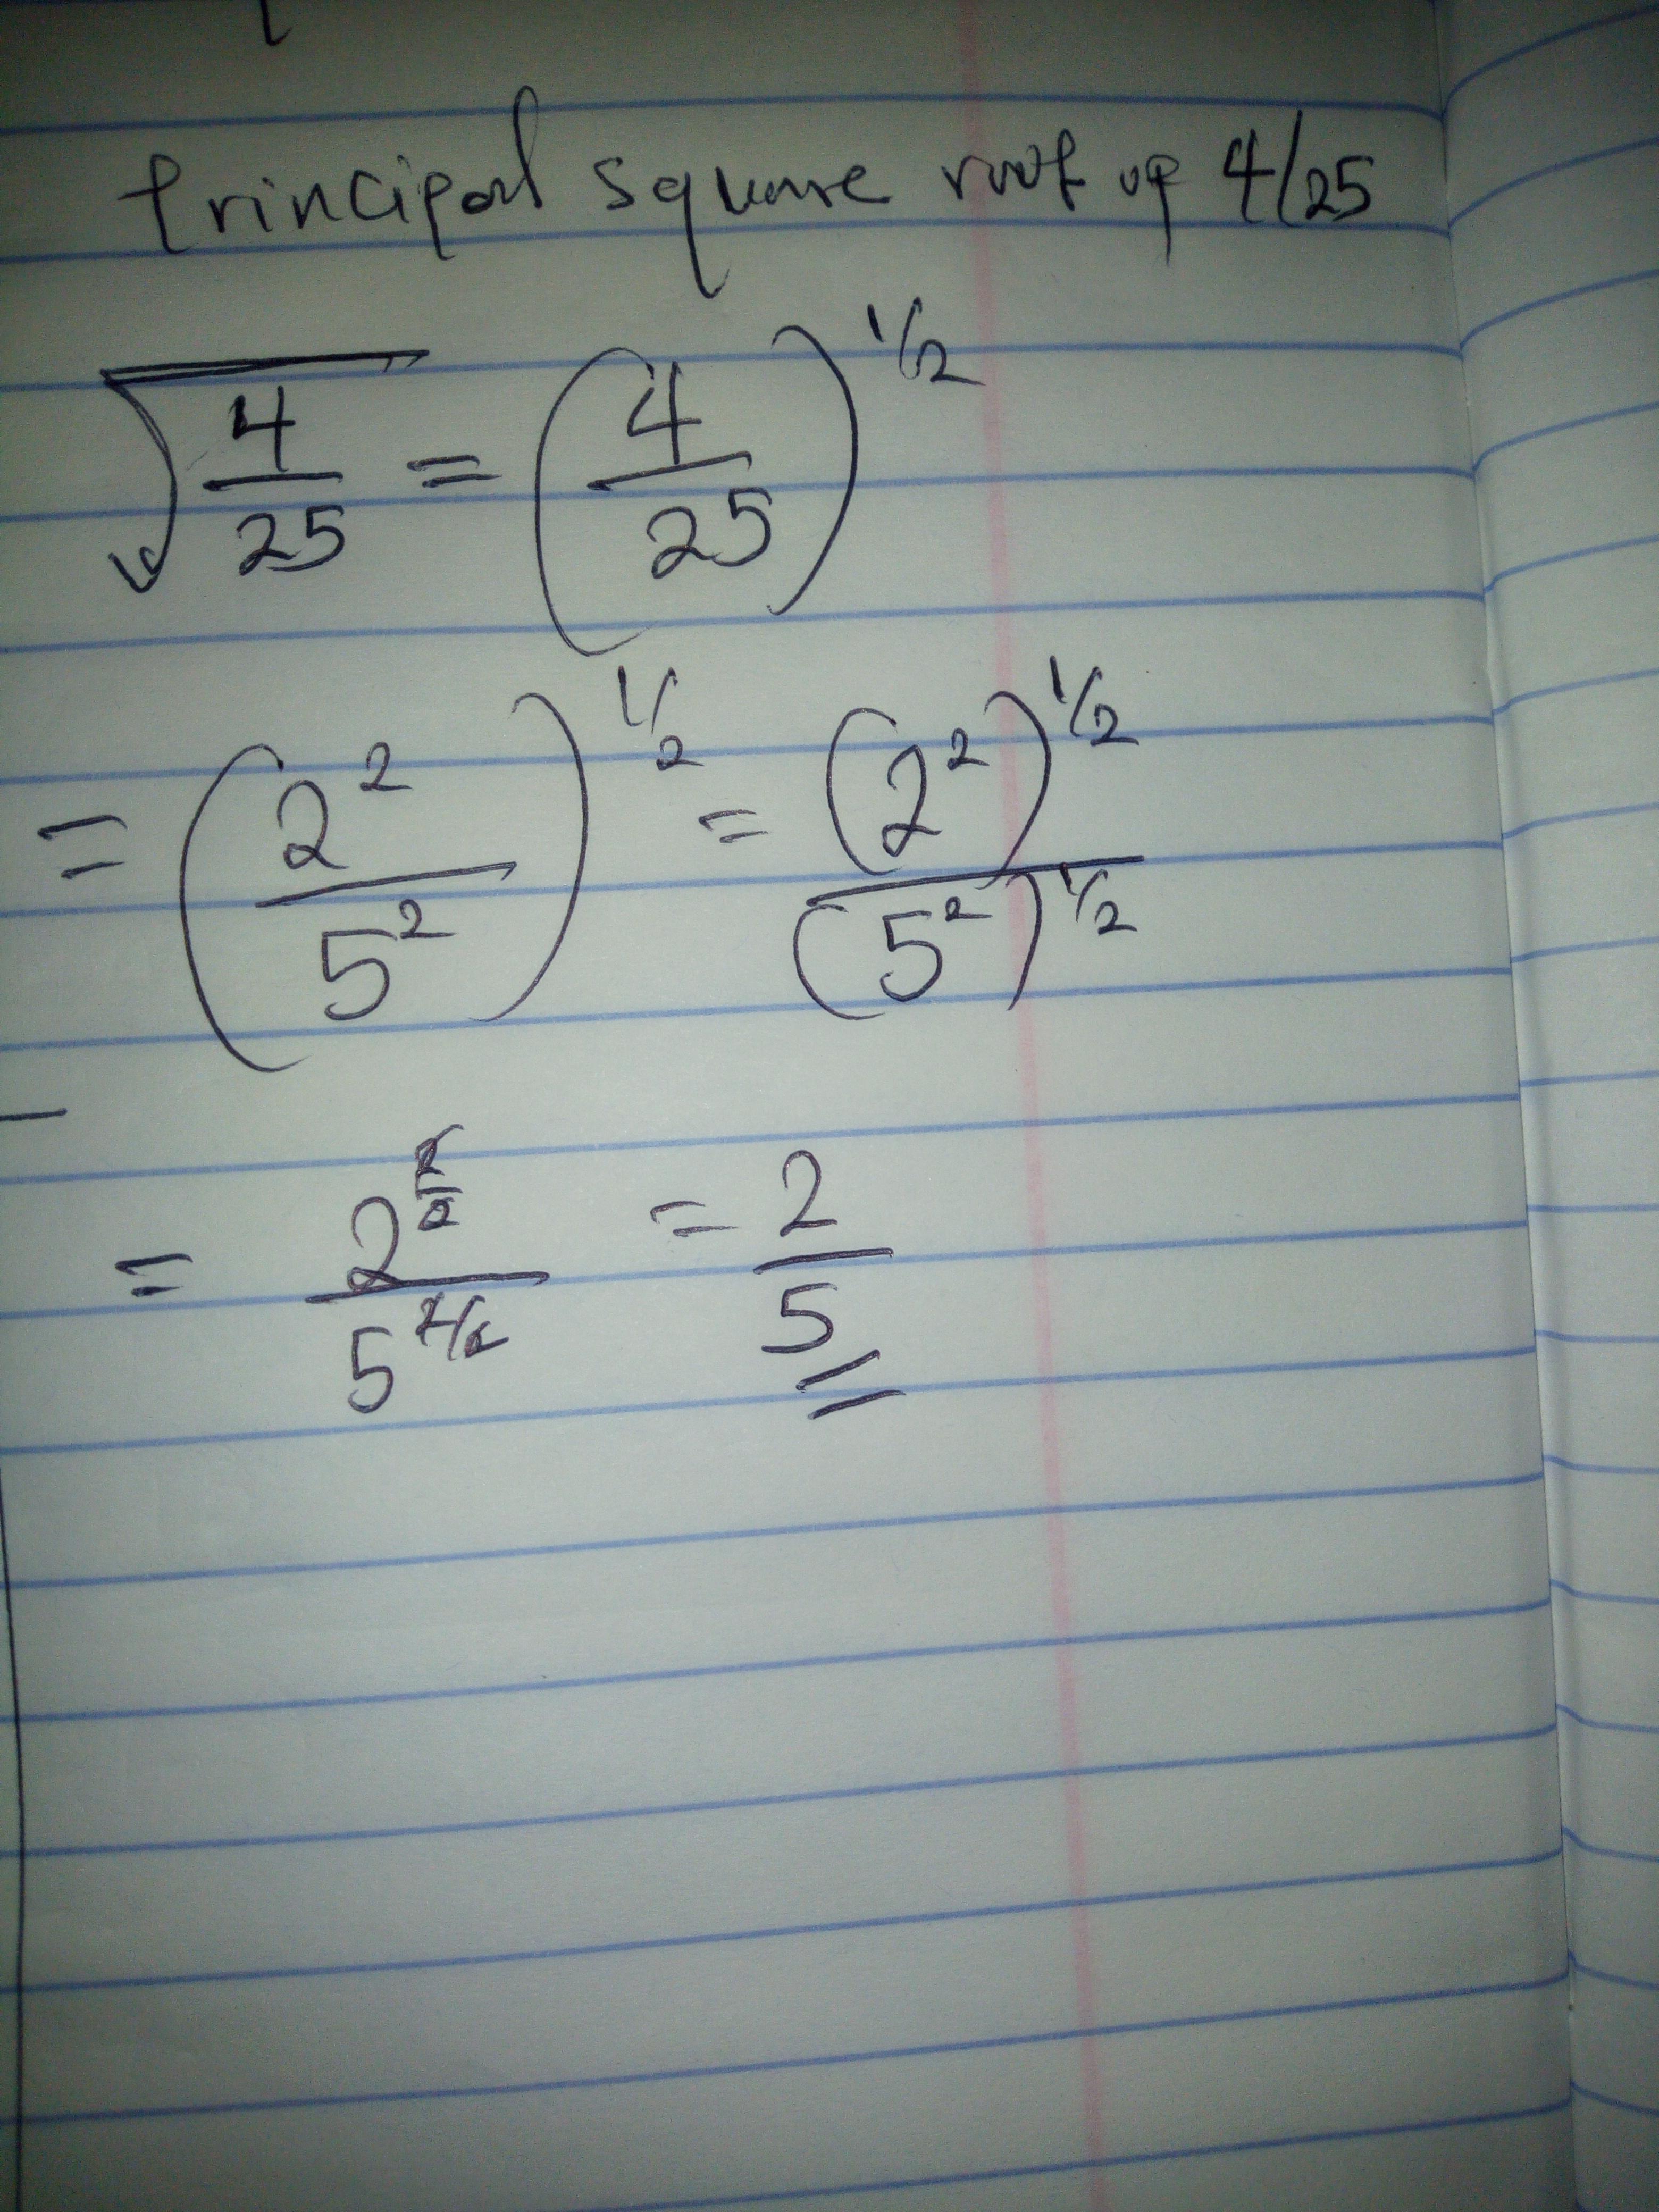 Principal square root of 4/25
√(4/25) = (4/25)^1/2
= (2^2/5^2)^1/2 = (2^2)^1/2/(5^2)^1/2
= 2^2/2/5^2/2 = 2/5